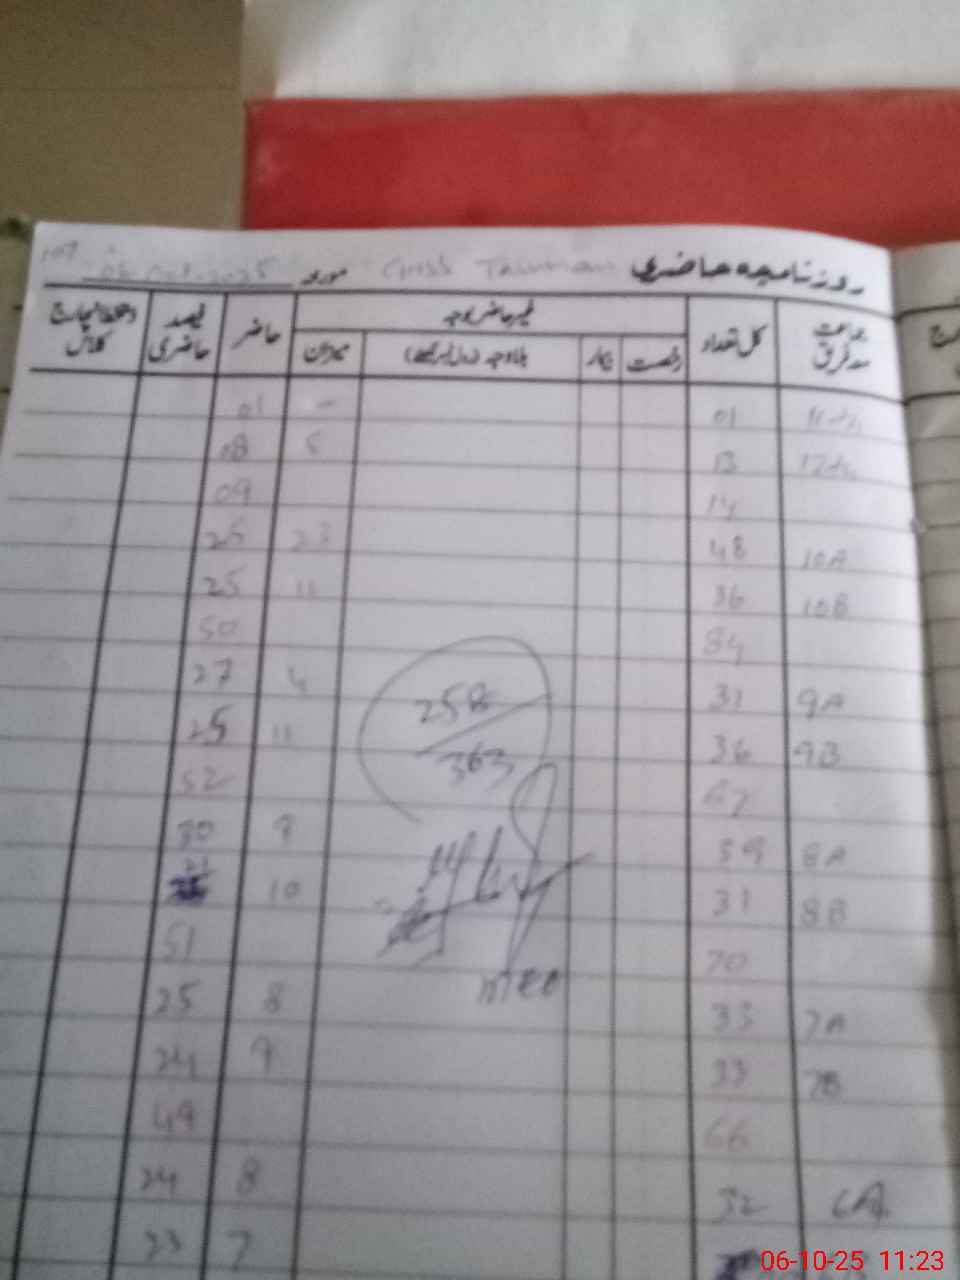 روزنامچہ حاضری GHSS مورخہ 06-Oct-2025 107
جماعت معہ فریق کل تعداد غیر حاضر بوجہ حاضر فیصد حاضری دستخط انچارج کلاس
رخصت بیمار بلاوجہ میزان
01 - 01
12th 13 5 08
14 09
10A 48 23 25
10B 36 11 25
84 50
9A 31 4 27
9B 36 11 25
67 52
8A 39 9 30
8B 31 10 21
70 51
7A 33 8 25
7B 33 9 24
66 49
6A 32 8 24
7 23
258
363
06-10-25 11:23